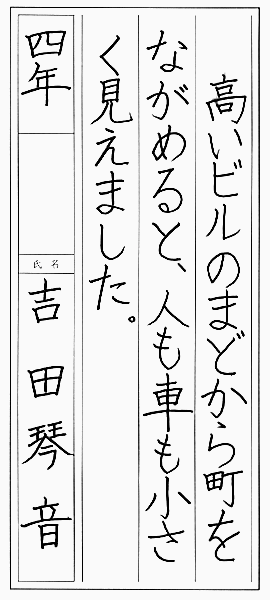 高いビルのまどから町を
ながめると、人も車も小さ
く見えました。
四年
氏名
吉田琴音